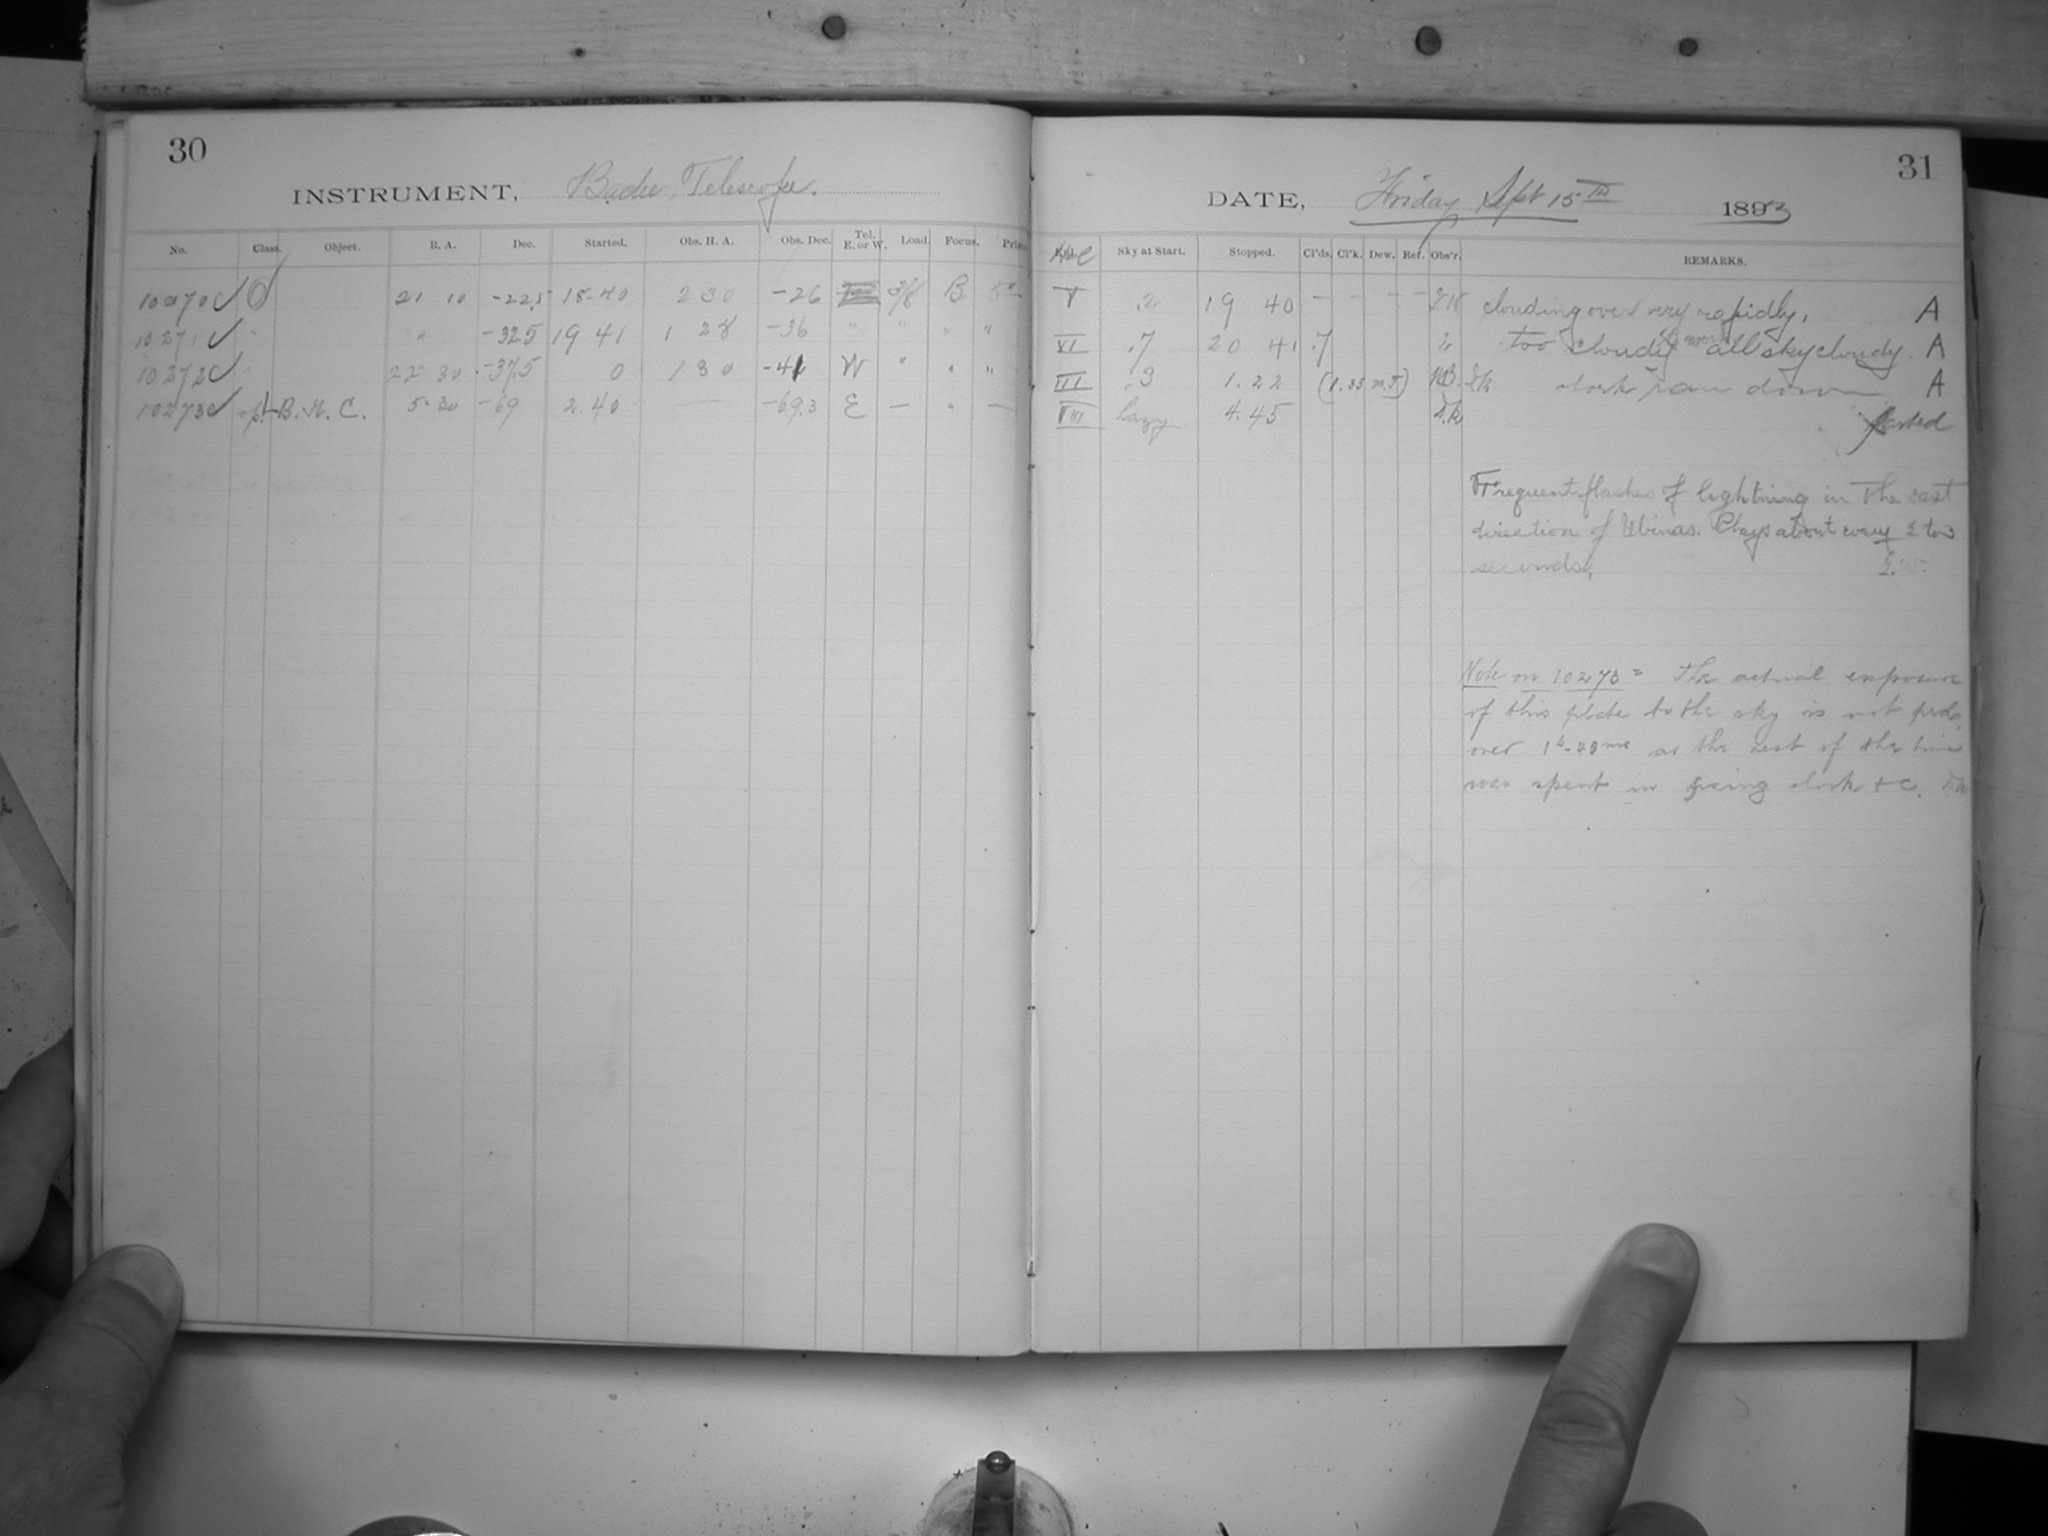 30
INSTRUMENT, Bache Telescope.
No. Class. Object. R. A. Dec. Started. Obs. H. A. Obs. Dec. Tel. E. or W. Load. Focus. Prism
10270 O 21 10 -22.5 18-40 2 30 -26 B
10271 " " -32.5 19 41 1 28 -36 " " " "
10272 " 22 30 -37.5 0 1 30 -41 W " " "
10273 B. H. C. 5-30 -69 2.40 — -69.3 E — " —
31
DATE, Friday Sept 15TH 1893
Sky at Start. Stopped. Cl'ds. Cl'k. Dew. Ref. Obs'r. REMARKS.
V .2 19 40 - - - - clouding over very rapidly, A
VI .7 20 41 .7 " too cloudy all sky cloudy. A
III .3 1.22 clock ran down A
VIII hazy 4.45
Frequent flashes of lightning in the east
direction of Ubinas. Plays about every 2 to 3
seconds,
Note on 10270 = The actual exposure
of this plate to the sky is not prob.
over 1h-40m as the rest of the time
was spent in fixing clock + c.